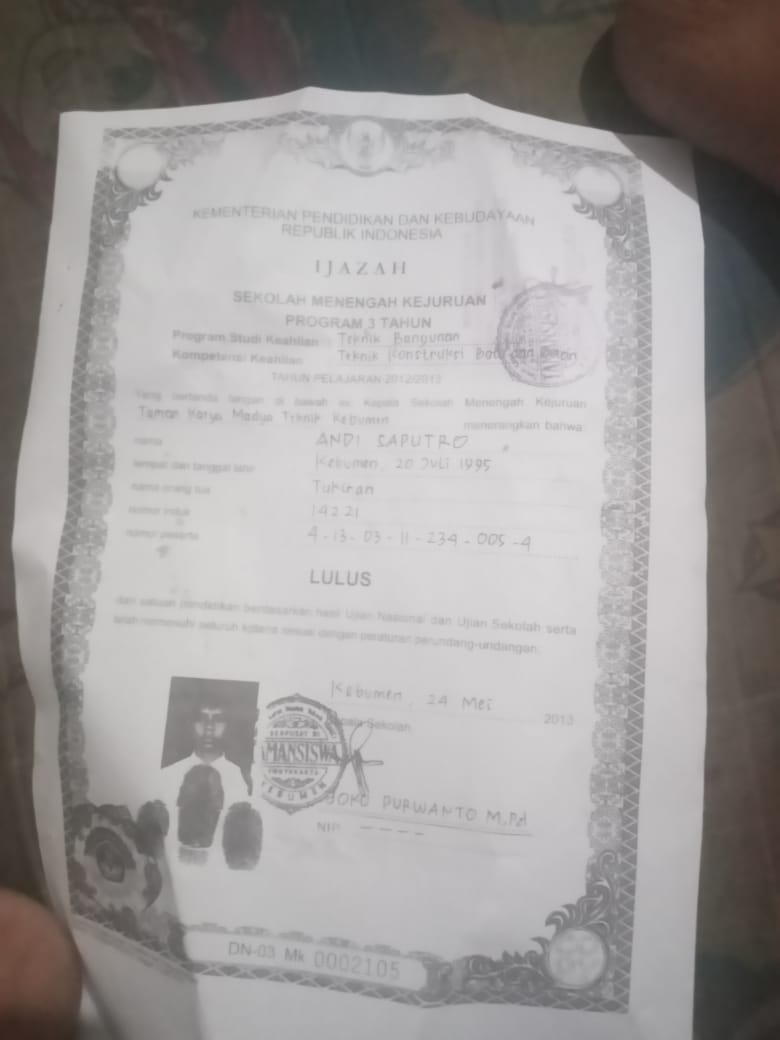 KEMENTERIAN PENDIDIKAN DAN KEBUDAYAAN
REPUBLIK INDONESIA
IJAZAH
SEKOLAH MENENGAH KEJURUAN
PROGRAM 3 TAHUN
Program Studi Keahlian : Teknik Bangunan
Kompetensi Keahlian : Teknik Konstruksi Batu dan Beton
TAHUN PELAJARAN 2012/2013
Yang bertanda tangan di bawah ini, Kepala Sekolah Menengah Kejuruan
Taman Karya Madya Teknik Kebumen menerangkan bahwa:
nama ANDI SAPUTRO
tempat dan tanggal lahir Kebumen, 20 Juli 1995
nama orang tua Tukiran
nomor induk 14221
nomor peserta 4-13-03-11-234-005-4
LULUS
dari satuan pendidikan berdasarkan hasil Ujian Nasional dan Ujian Sekolah serta
telah memenuhi seluruh kriteria sesuai dengan peraturan perundang-undangan.
Kebumen, 24 Mei 2013
Kepala Sekolah
BERPUSAT DI
TAMANSISWA
YOGYAKARTA
KEBUMEN
JOKO PURWANTO M.Pd
NIP. ----
DN-03 Mk 0002105